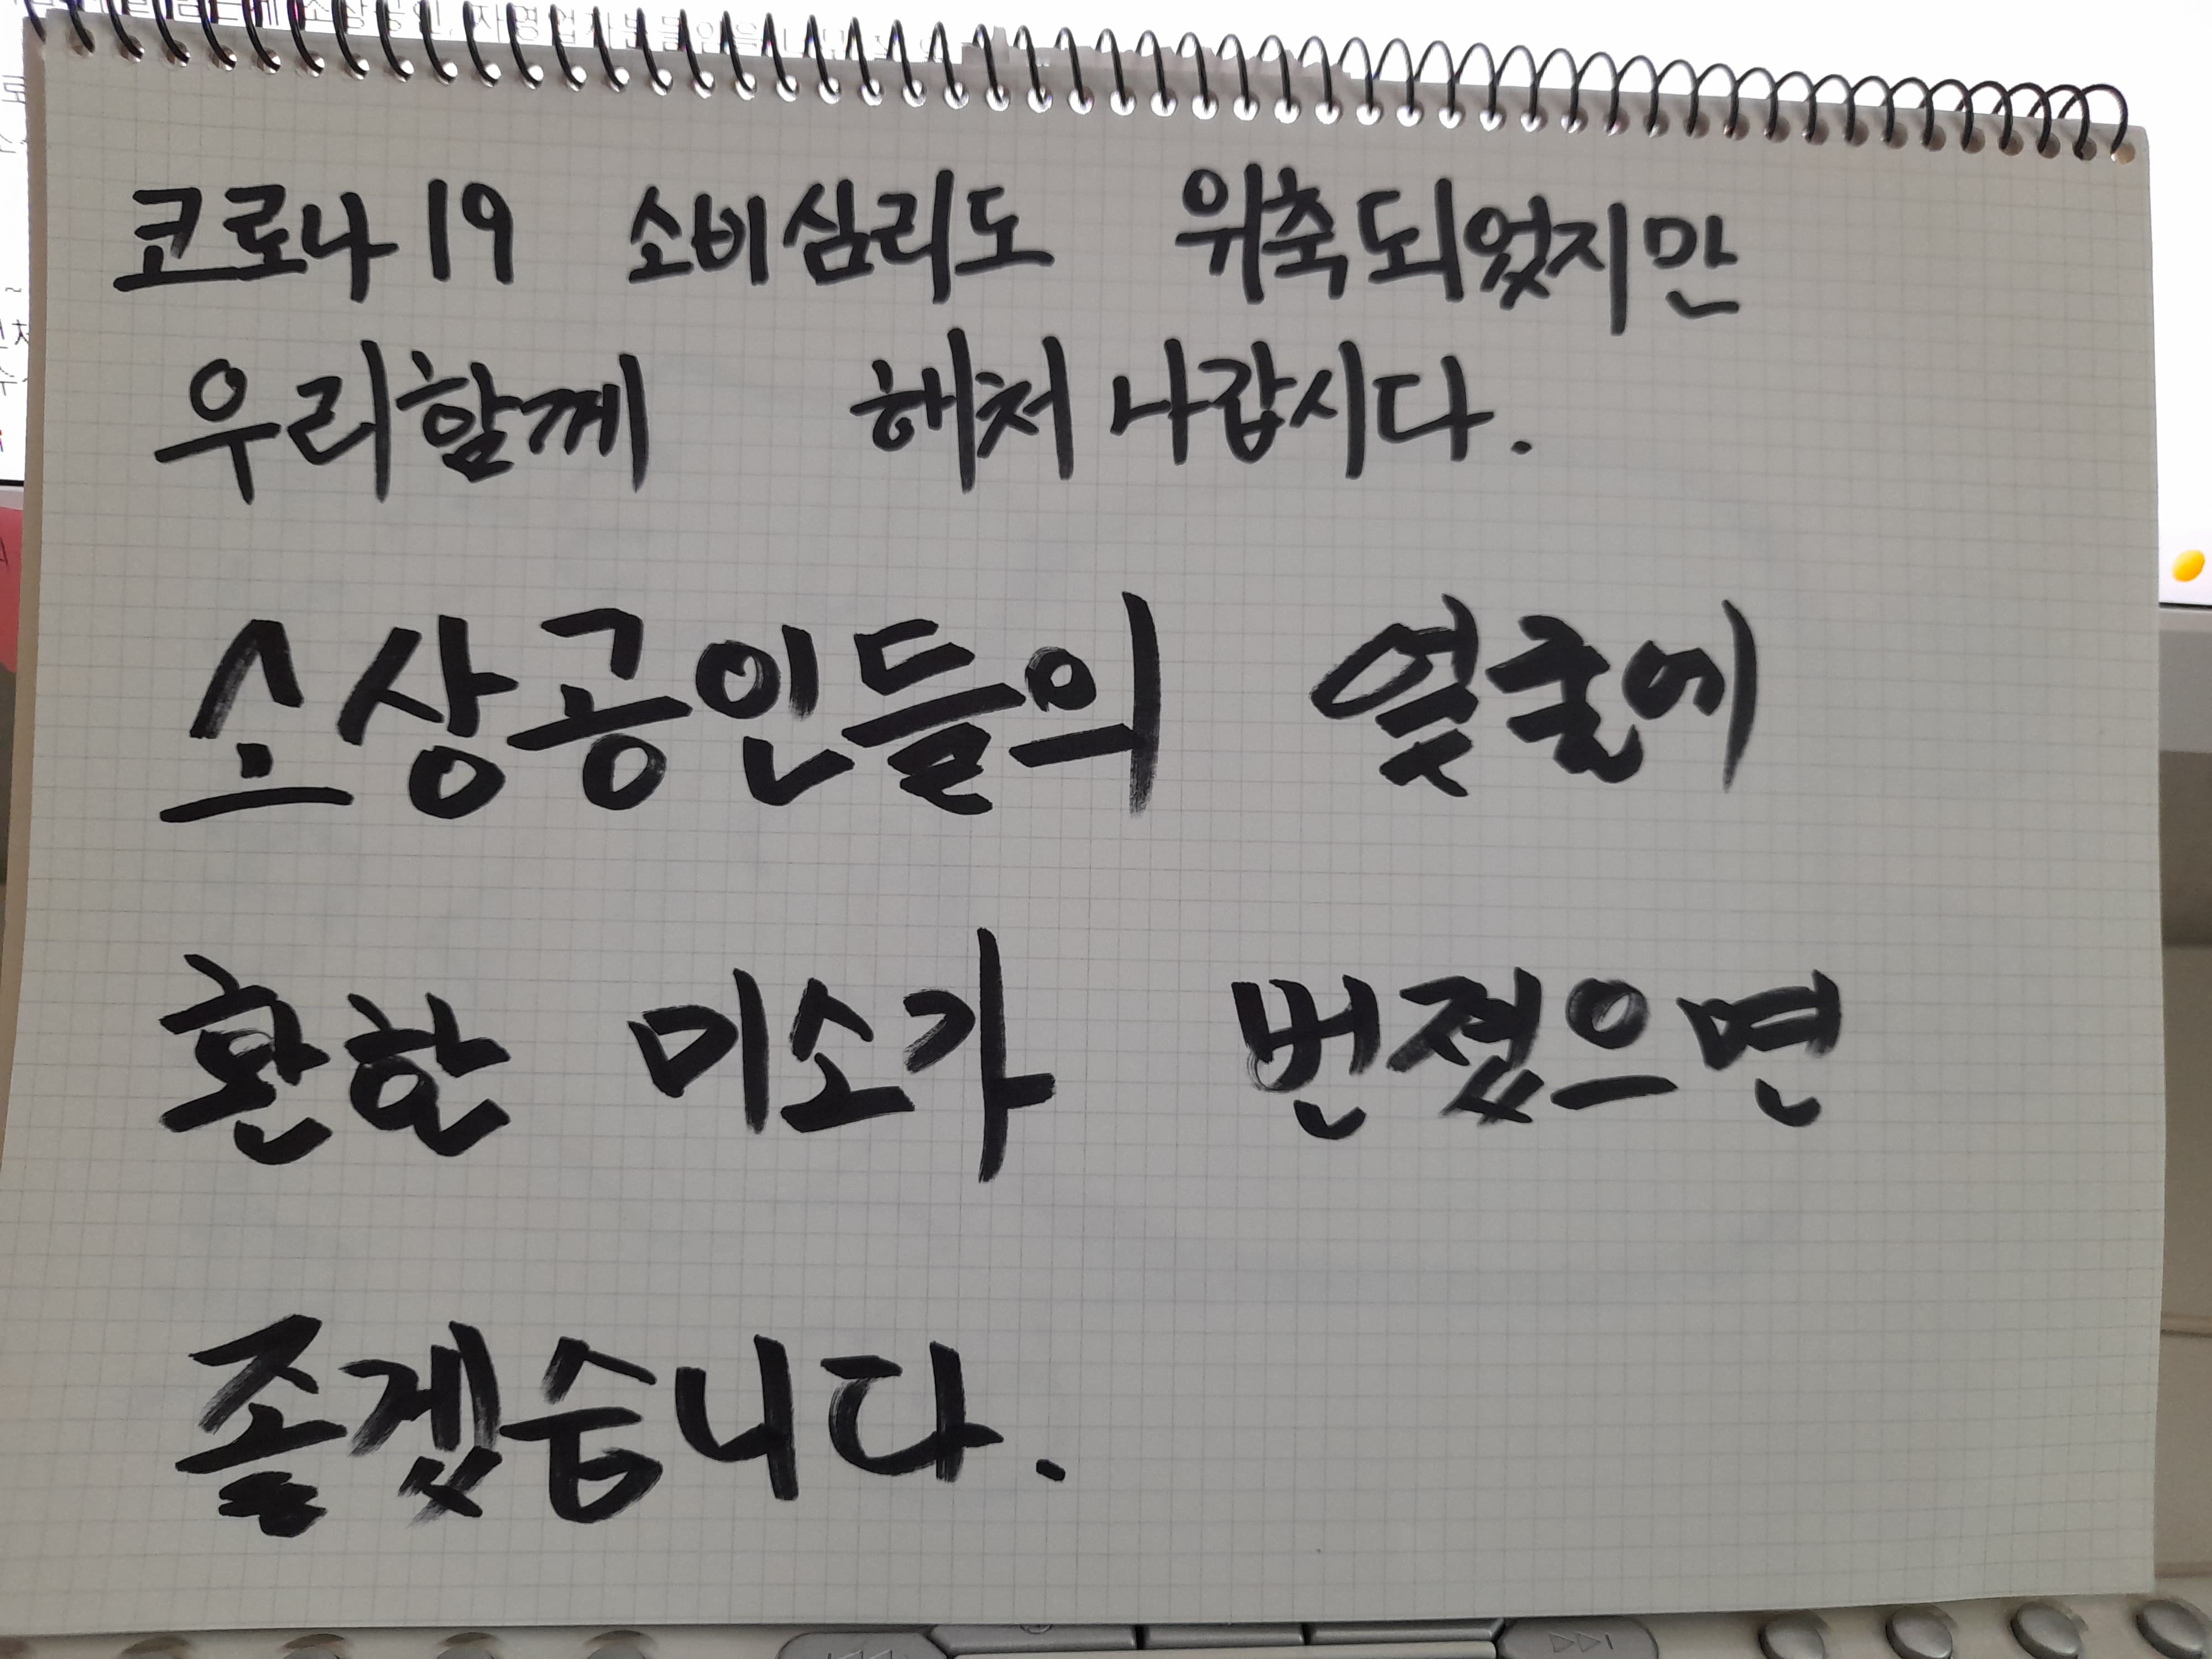 코로나 19 소비심리도 위축되었지만
우리함께 해쳐 나갑시다.
소상공인들의 얼굴에
환한 미소가 번졌으면
좋겠습니다.